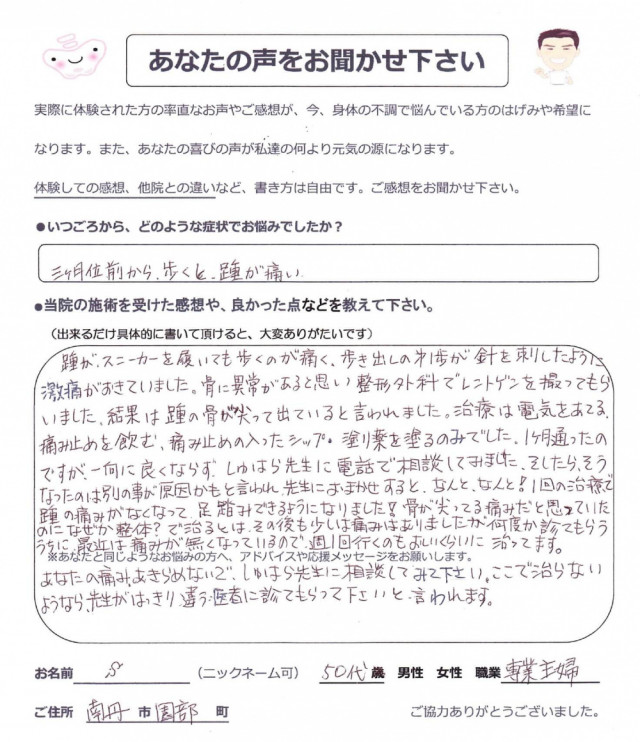 あなたの声をお聞かせ下さい
実際に体験された方の率直なお声やご感想が、今、身体の不調で悩んでいる方のはげみや希望に
なります。また、あなたの喜びの声が私達の何より元気の源になります。
体験しての感想、他院との違いなど、書き方は自由です。ご感想をお聞かせ下さい。
●いつごろから、どのような症状でお悩みでしたか？
三ヶ月位前から、歩くと、踵が痛い
●当院の施術を受けた感想や、良かった点などを教えて下さい。
（出来るだけ具体的に書いて頂けると、大変ありがたいです）
踵が、スニーカーを履いても歩くのが痛く、歩き出しの第1歩が針を刺したように
激痛がおきていました。骨に異常があると思い整形外科でレントゲンを撮ってもら
いました、結果は踵の骨が尖って出ていると言われました。治療は電気をあてる、
痛み止めを飲む、痛み止めの入ったシップ・塗り薬を塗るのみでした、1ヶ月通ったの
ですが、一向に良くならず、しゅはら先生に電話で相談してみました、そしたら、そう
なったのは別の事が原因かもと言われ、先生におまかせすると、なんと、なんと！1回の治療で
踵の痛みがなくなって、足踏みできるようになりました！骨が尖ってる痛みだと思っていた
のになぜか整体？で治るとは、その後も少しは痛みはありましたが何度か診てもらう
うちに、最近は痛みが無くなっているので、週1回行くのもおしいくらいに治ってます。
※あなたと同じようなお悩みの方へ、アドバイスや応援メッセージをお願いします。
あなたの痛み、あきらめないで、しゅはら先生に相談してみて下さい。ここで治らない
ようなら、先生がはっきり、違う医者に診てもらって下さいと言われます。
お名前 S （ニックネーム可） 50代 歳 男性 女性 職業 専業主婦
ご住所 南丹 市 園部 町 ご協力ありがとうございました。